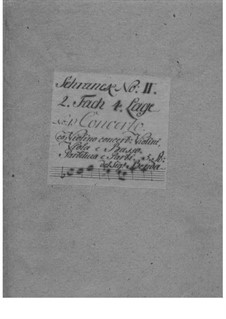 Schranck No: II.
2. Fach 4. Lage
Concerto.
Violino concert: Violini
Viola e Basso.
Partitura e Parti
del Sigr Benda